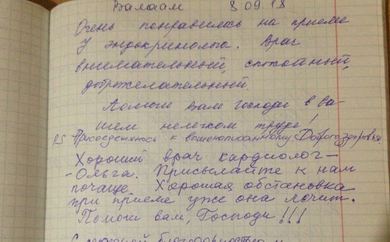 Валаам 8.09.18
Очень понравилось на приеме
у эндокринолога. Врач
внимательный, спокойный,
доброжелательный.
Помоги Вам Господи в ва-
шем нелегком труде!
PS Присоединяюсь к вышенаписанному. Доброго здоровья
Хороший врач кардиолог -
- Ольга. Присылайте к нам
почаще. Хорошая обстановка
при приеме уже она лечит.
Помоги вам, Господи!!!